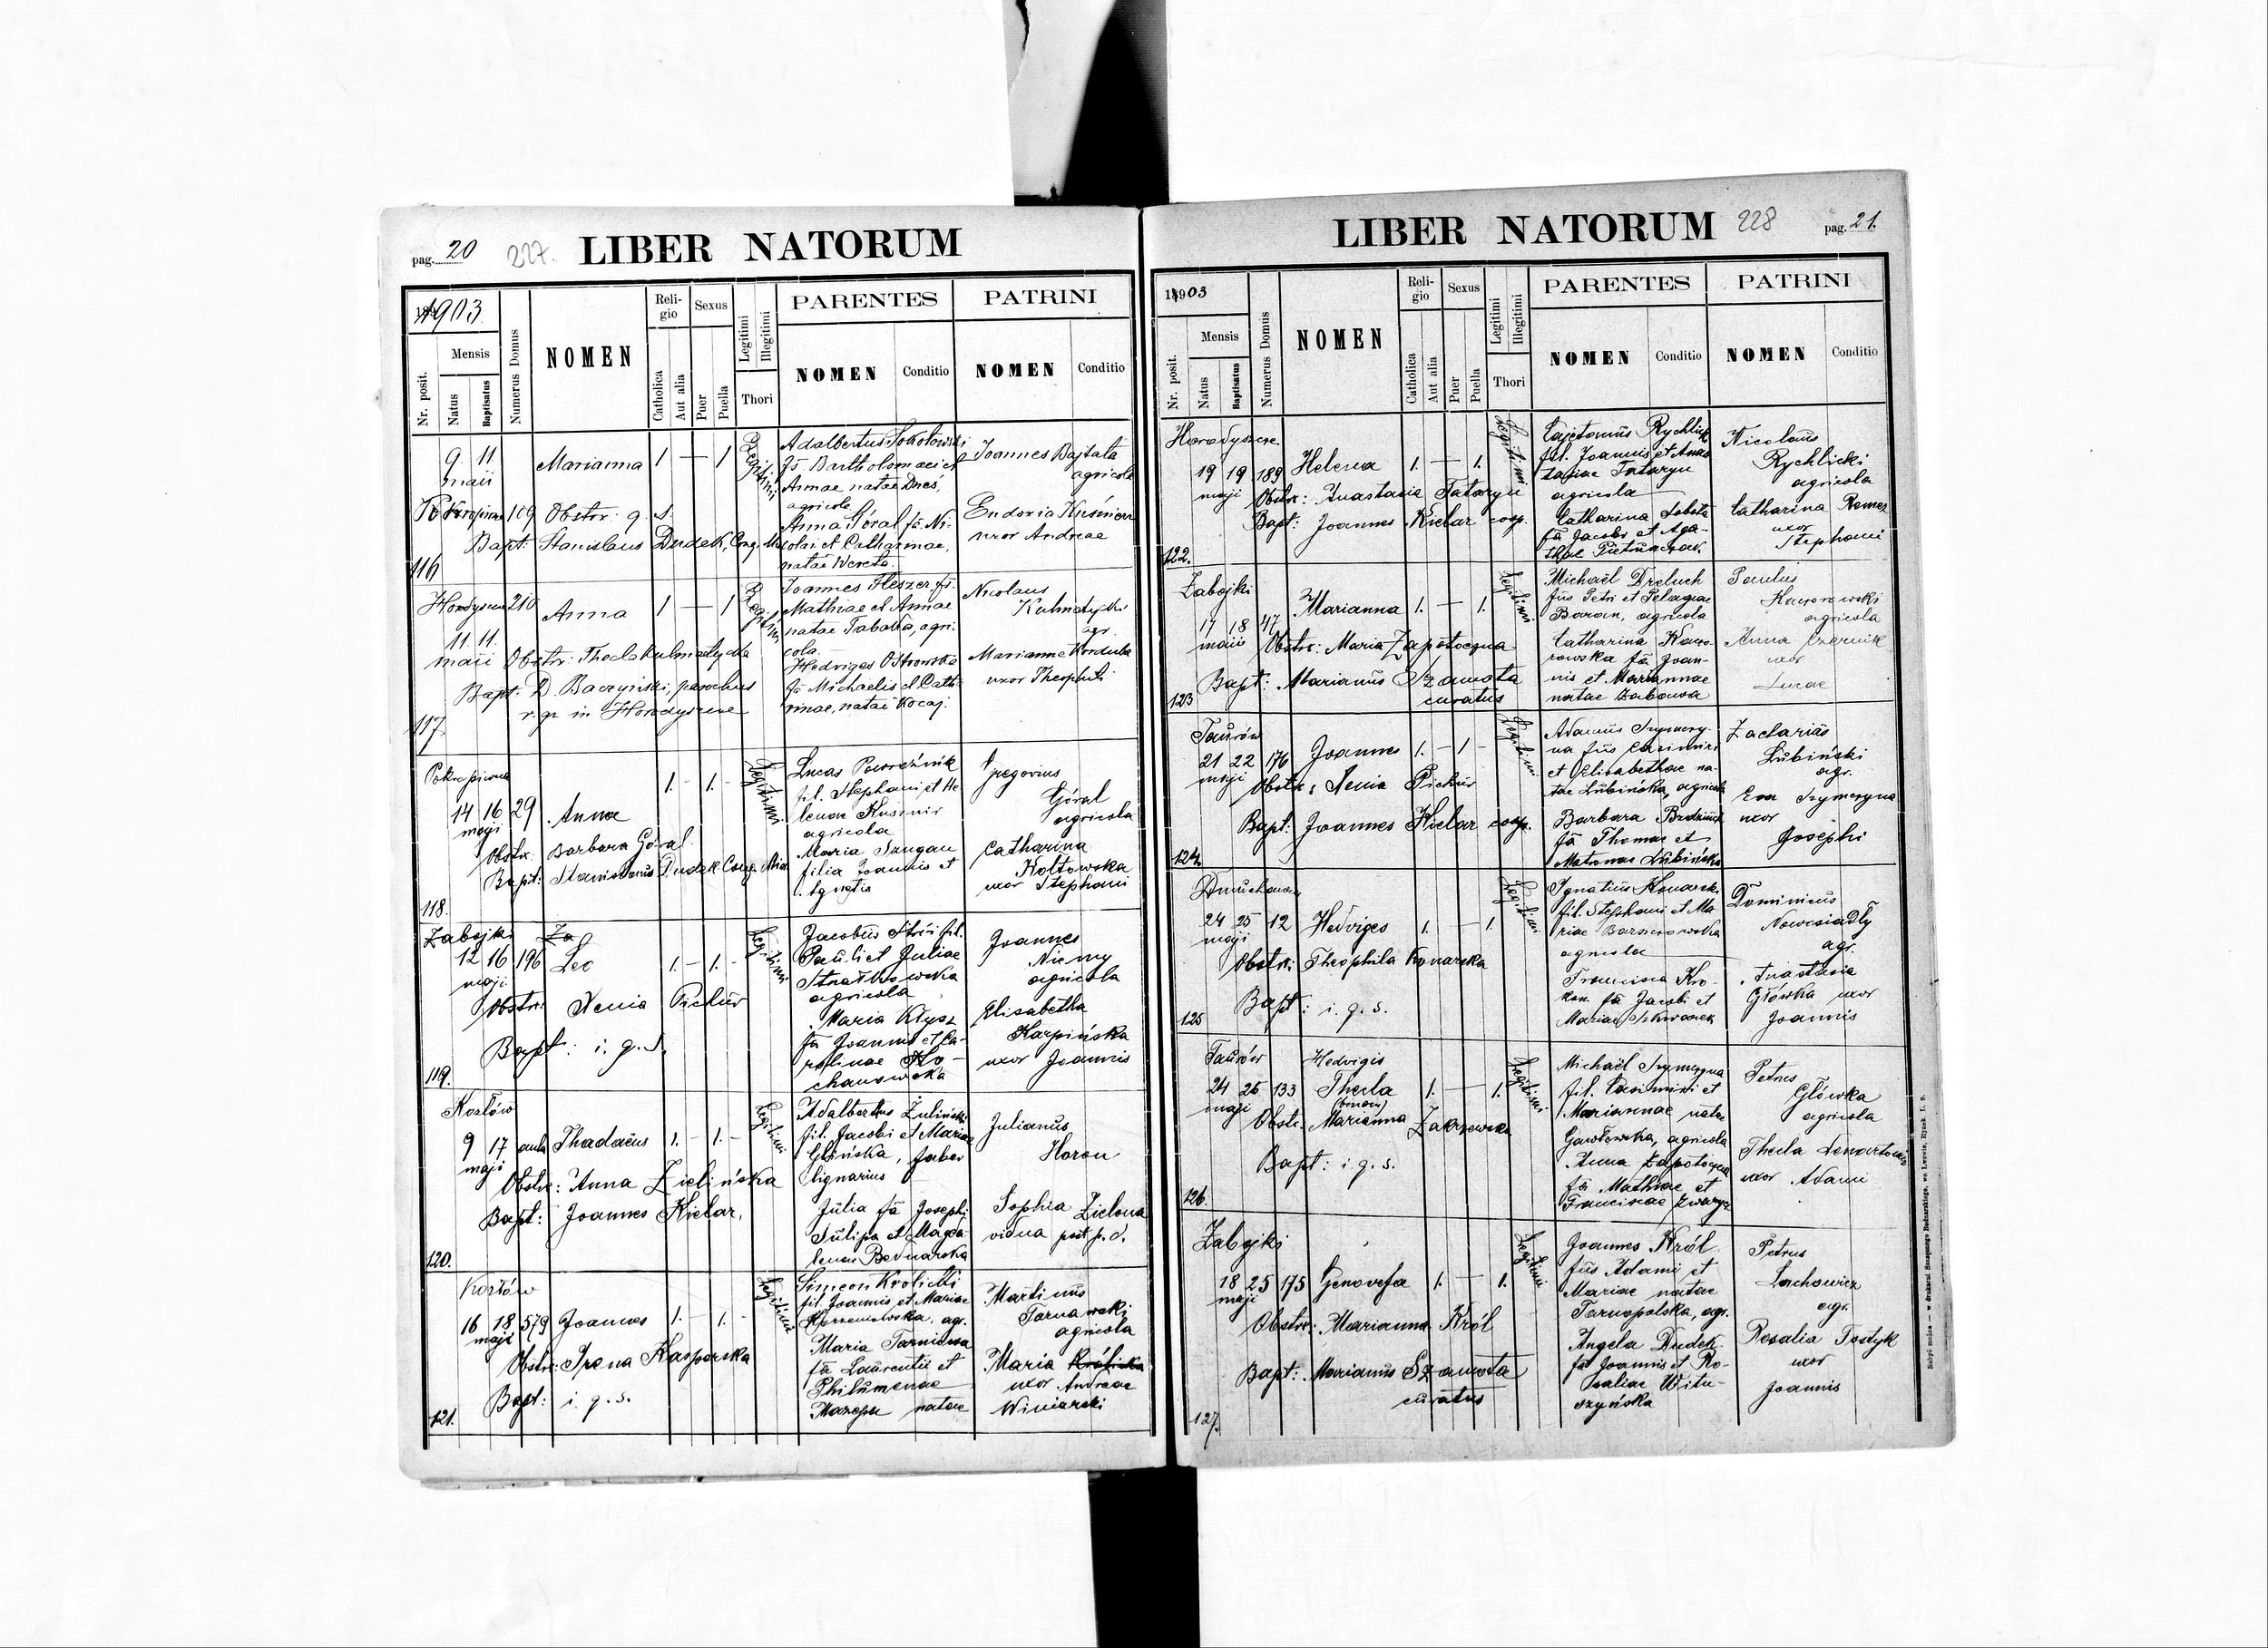 pag. 20 227. LIBER NATORUM
1903.
Nr. posit.
Mensis
Natus
Baptisatus
Numerus Domus
NOMEN
Religio
Catholica
Aut alia
Sexus
Puer
Puella
Legitimi
Illegitimi
Thori
PARENTES
NOMEN
Conditio
PATRINI
NOMEN
Conditio
9 11
maii
109
Marianna 1 — 1
Legitimi
Obstr. q. s.
Bapt: Stanislaus Dudek, Cong. Mis
Adalbertus Sokołowski
fs Bartholomaei et
Annae natae Dneś,
agricola
Anna Góral fa Ni-
colai et Catharinae,
natae Wereta.
Joannes Bajtała
agricola
Eudoxia Kuśnierz
uxor Andreae
116
Horodyszcze 210 Anna 1 — 1
Legitimi
11. 11.
maii
Obstr: Thecla Kulmatycka
Bapt: D. Baczyński, parochus
r. gr. in Horodyszcze
Joannes Fleszer fs.
Mathiae et Annae
natae Tabaka, agri-
cola.
Hedviges Ostrowska
fa Michaelis et Cath-
rinae, natae Kocaj.
Nicolaus
Kulmatycki
agr.
Marianna Korduba
uxor Theophili
117.
Pokropiwna
14 16 29 Anna 1. - 1. -
maji
Legitimi
Obstr. Barbara Góral
Bapt: Stanislaus Dudek Cong. Mis
Lucas Powroźnik
fil. Stephani et He-
lenae Kusznir
agricola
Maria Sangau
filia Joannis et
Agnetis
Gregorius
Góral
agricola
Catharina
Kołtowska
uxor Stephani
118.
Zabojki Za
12 16 196 Leo 1. - 1. -
maji
Legitimi
Obstr: Xenia Pickur
Bapt: i. q. s.
Jacobus Strij fil.
Pauli et Juliae
agricola
Maria Kłysz
fa Joannis et Ca-
rolinae Ko-
chanowska
Joannes
Niemy
agricola
Elisabetha
Karpińska
uxor Joannis
119.
Kozłów
9 17 aula Thadaeus 1. - 1. -
maji
Legitimi
Obstr: Anna Zielińska
Bapt: Joannes Kielar,
Adalbertus Żuliński
fil. Jacobi et Mariae
Glińska, faber
lignarius
Julia fa Josephi
Tulipa et Magda-
lenae Bednarska
Julianus
Horon
Sophia Zielona
vidua post p. d.
120.
Kozłów
16 18 579 Joannes 1. - 1. -
maji
Legitimi
Obstr: Irena Kasperska
Bapt: i. q. s.
Simeon Krolicki
fil. Joannis et Mariae
agr.
Maria Tarnicwa
fa Laurentii et
Philumenae
Mazepa natae
Martinus
Tarnawski
agricola
Maria Królicka
uxor Andreae
Winiarski
121.
LIBER NATORUM 228 pag. 21.
1903
Nr. posit.
Mensis
Natus
Baptisatus
Numerus Domus
NOMEN
Religio
Catholica
Aut alia
Sexus
Puer
Puella
Legitimi
Illegitimi
Thori
PARENTES
NOMEN
Conditio
PATRINI
NOMEN
Conditio
Horodyszcze
19 19 189 Helena 1. — 1.
maji
Legitimi
Obstr: Anastasia Tataryn
Bapt: Joannes Kielar coop.
Cajetanus Rychlick
fil. Joannis et Anas-
tasiae Tataryn
agricola
Catharina Sobota
fa Jacobi et Aga-
thae Pietruszczak
Nicolaus
Rychlicki
agricola
Catharina Remez
uxor
Stephani
122.
Zabojki
17 18 47 Marianna 1. — 1.
maii
Legitimi
Obstr: Maria Zapotoczna
Bapt: Marianus Szamota
curatus
Michaël Dreluch
fius Petri et Pelagiae
Baran, agricola
Catharina Kawo-
rowska fa Joan-
nis et Mariannae
natae Zabawa
Paulus
Kaworowski
agricola
Anna Czernik
uxor
Lucae
123
Taurów
21 22 176 Joannes 1. - 1 -
maji
Legitimi
Obstr: Xenia Pickur
Bapt: Joannes Kielar coop.
Adamus Szymczy-
na fius Casimiri
et Elisabethae na-
tae Lubińska, agricola
Barbara Budzinsk
fa Thomae et
Matronae Lubińska
Zacharias
Lubiński
agr.
Eva Szymczyna
uxor
Josephi
124.
24 25 12 Hedviges 1. — 1.
maji
Legitimi
Obstr: Theophila Konarska
Bapt: i. q. s.
Ignatius Konarski
fil. Stephani et Ma-
riae Barszczowska
agricola
Francisca Kro-
kos fa Jacobi et
Mariae Skworek
Dominicus
Nowosiadły
agr.
Anastasia
Główka uxor
Joannis
125
Taurów
24 26 133 Hedvigis
maji
Thecla 1. — 1.
(binom)
Legitimi
Obstr: Marianna Zakrzewska
Bapt: i q. s.
Michaël Szymczyna
fil. Casimiri et
Mariannae natae
Gawłowska, agricola
Anna Zapotoczna
fa Mathiae et
Franciscae Zwarycz
Petrus
Główka
agricola
Thecla Lenartowicz
uxor Adami
126.
Zabojki
18 25 175 Genovefa 1. — 1.
maji
Legitimi
Obstr: Marianna Król
Bapt: Marianus Szamota
curatus
Joannes Król
fius Adami et
Mariae natae
Tarnopolska, agr.
Angela Dudek
fa Joannis et Ro-
saliae Witu-
szyńska
Petrus
Lachowicz
agr.
Rosalia Tostyk
uxor
Joannis
127.